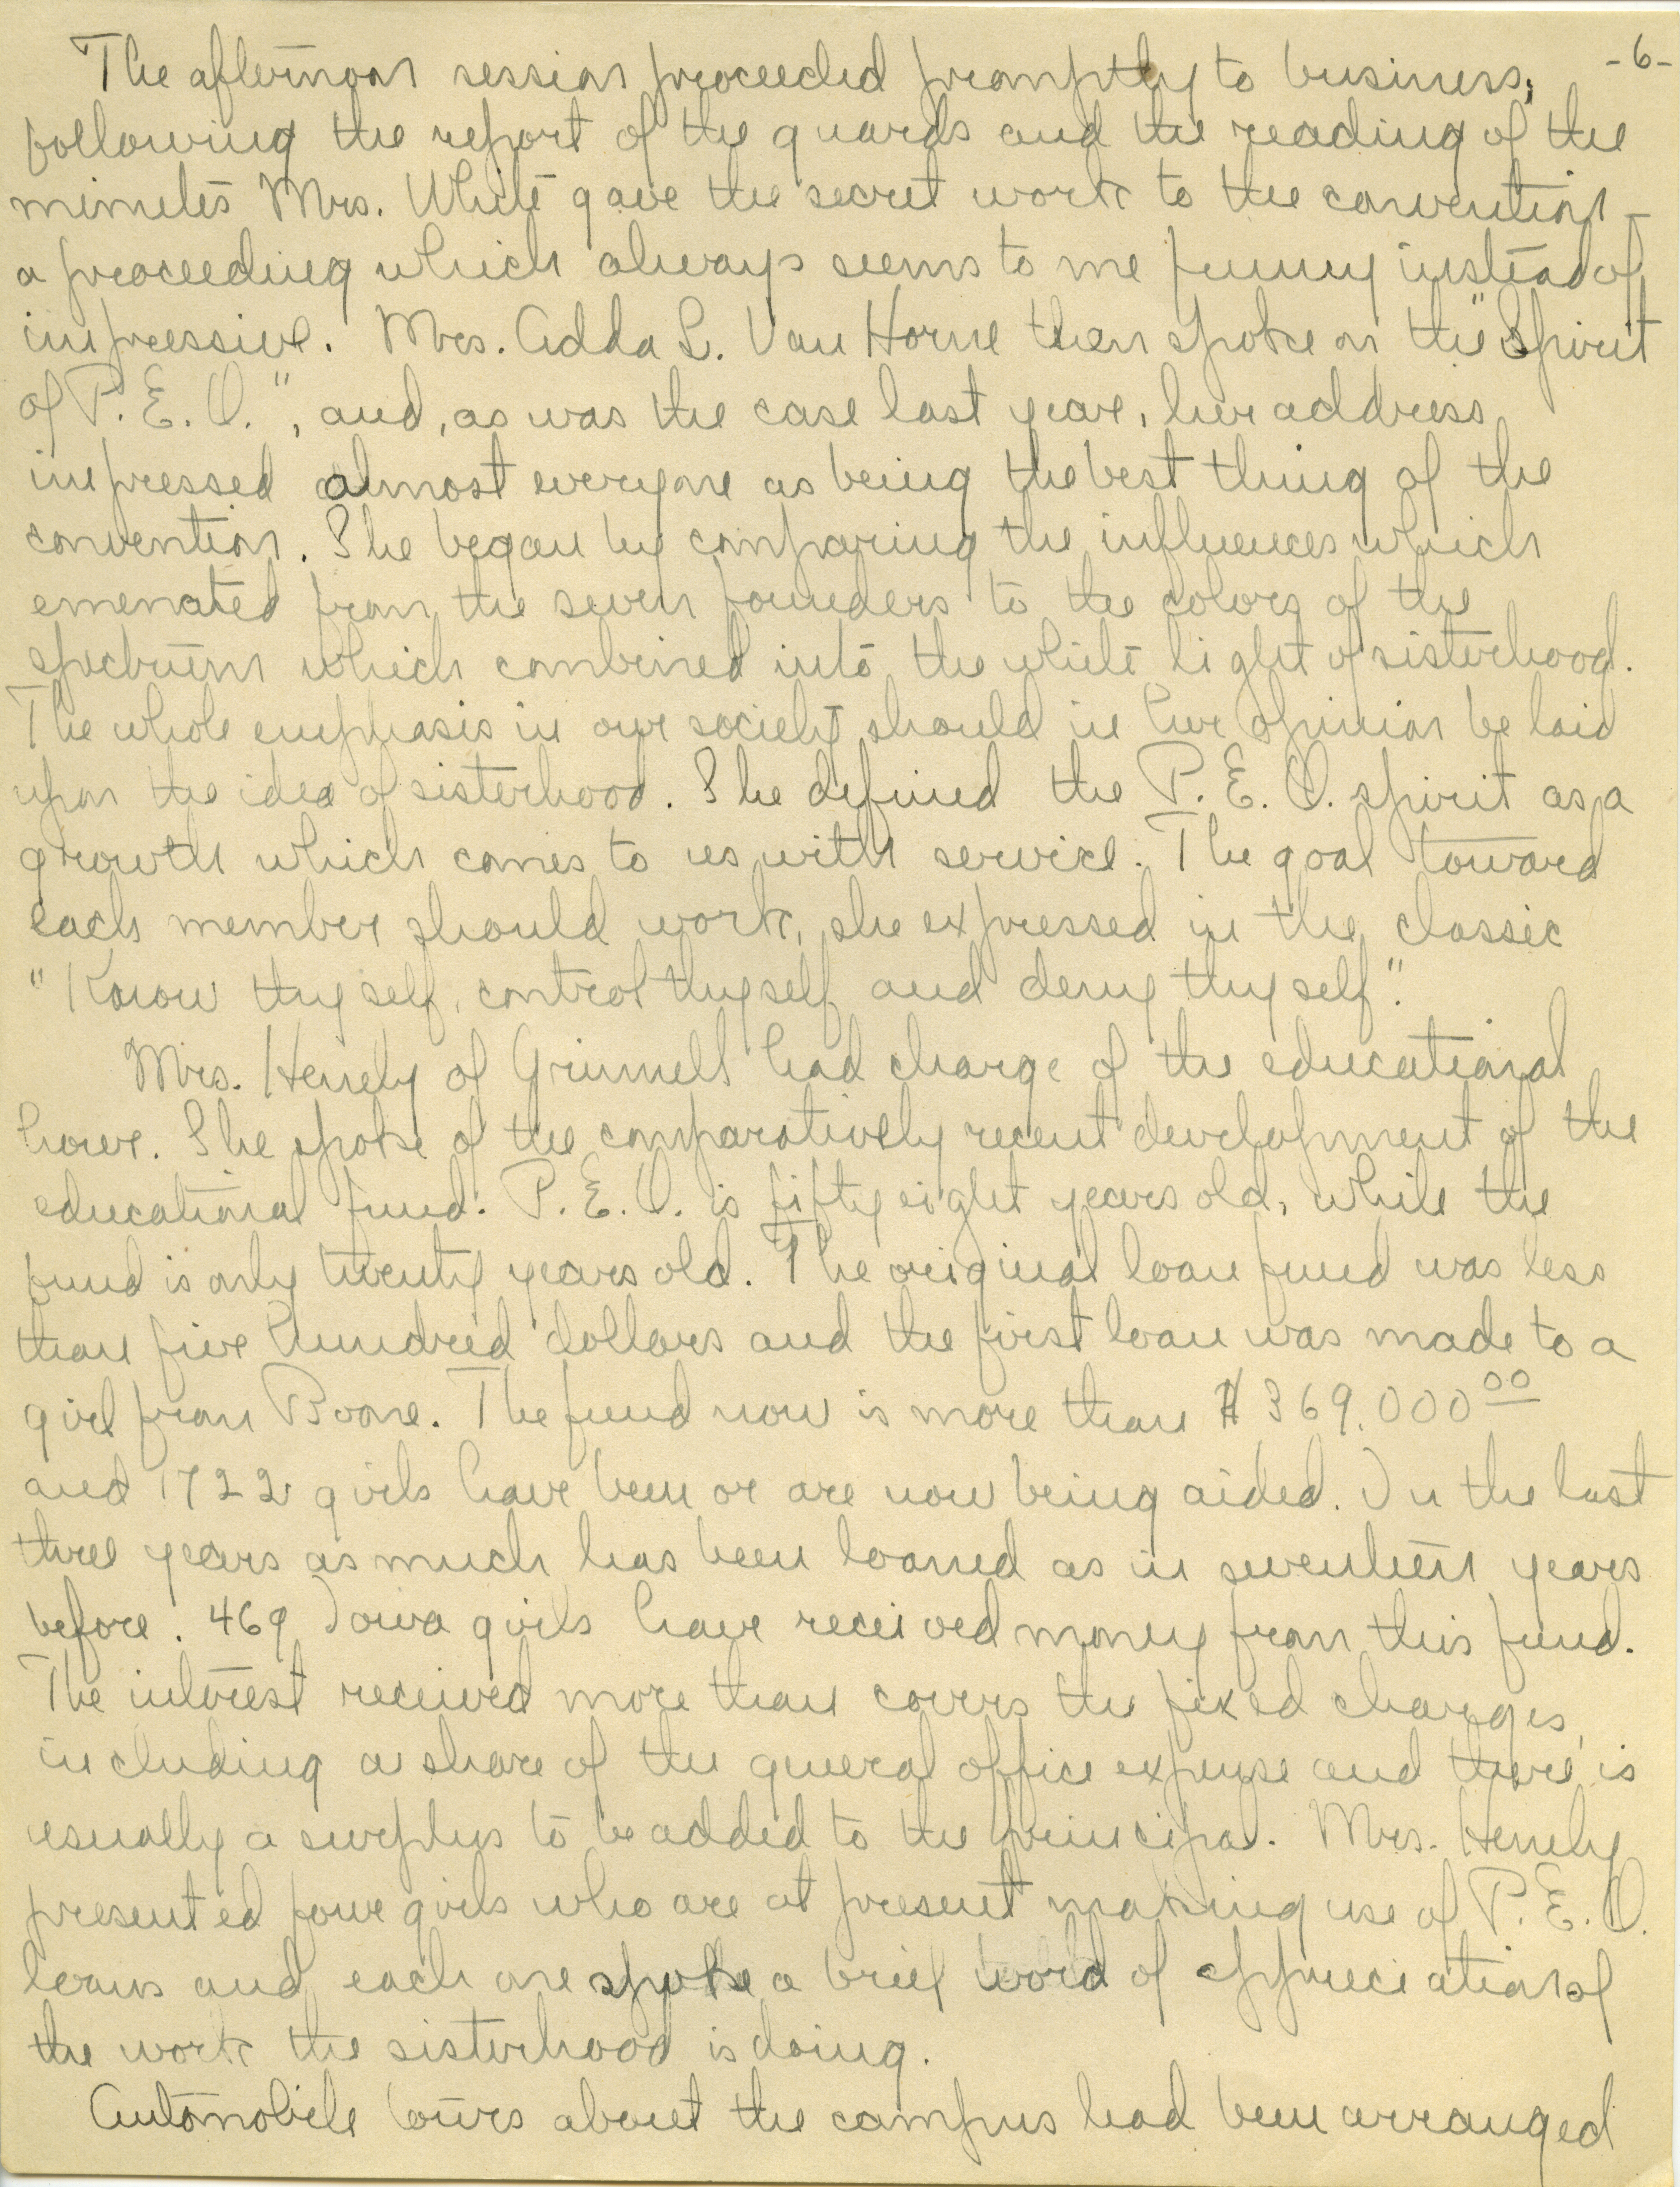 -6-
The afternoon session proceeded promptly to business;
following the report of the guards and the reading of the
minutes Mrs. White gave the secret work to the convention -
a proceeding which always seems to me funny instead of
impressive. Mrs. Adda L. Van Horne then spoke on the "Spirit
of P. E. O.", and, as was the case last year, her address
impressed almost everyone as being the best thing of the
convention. She began by comparing the influences which
emenated from the seven founders to the colors of the
spectrum which combined into the white light of sisterhood.
The whole emphasis in our society should in her opinion be laid
upon the idea of sisterhood. She defined the P. E. O. spirit as a
growth which comes to us with service. The goal toward
each member should work, she expressed in the classic
"Know thyself, control thyself and deny thyself".
Mrs. Henely of Grinnell had charge of the educational
hour. She spoke of the comparatively recent development of the
educational fund. P. E. O. is fifty eight years old, while the
fund is only twenty years old. The original loan fund was less
than five hundred dollars and the first loan was made to a
girl from Boone. The fund now is more than $369,000.00
and 1722 girls have been or are now being aided. In the last
three years as much has been loaned as in seventeen years
before. 469 Iowa girls have received money from this fund.
The interest received more than covers the fixed charges,
including a share of the general office expense and there is
usually a surplus to be added to the principal. Mrs. Henely
presented four girls who are at present making use of P. E. O.
loans and each one spoke a brief word of appreciation of
the work the sisterhood is doing.
Automobile tours about the campus had been arranged